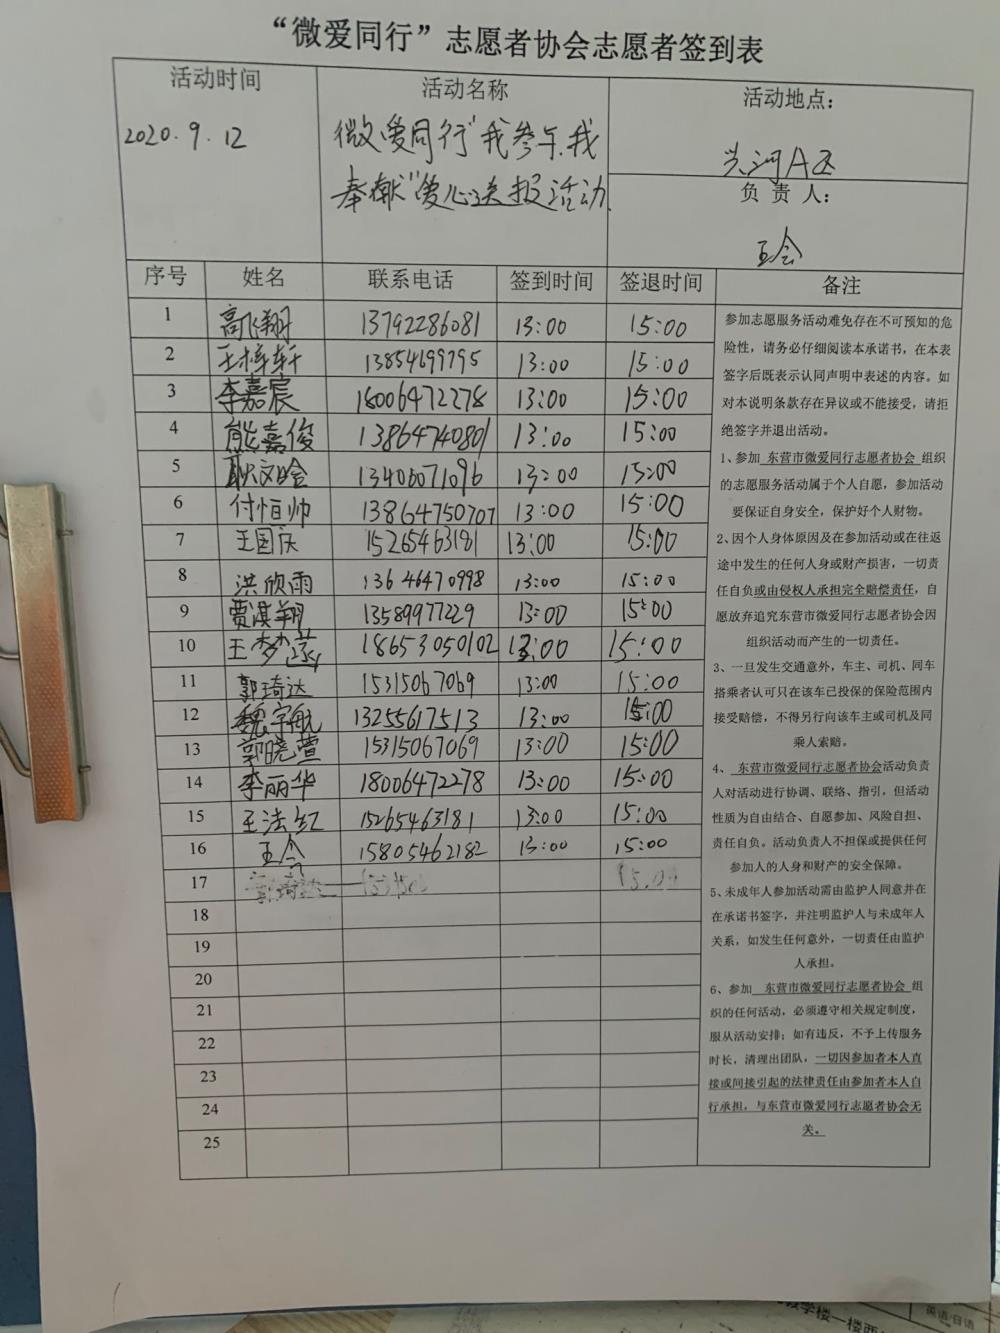 “微爱同行”志愿者协会志愿者签到表
活动时间
2020.9.12
活动名称
微爱同行"我参与.我
奉献"爱心送报活动.
活动地点：
河A区
负 责 人：
王会
序号 姓名 联系电话 签到时间 签退时间 备注
1 高飞翔 13792286081 13:00 15:00
2 王梓轩 13854699795 13:00 15:00
3 李嘉宸 18006472278 13:00 15:00
4 熊嘉俊 13864740801 13:00 15:00
5 耿文晗 13406071096 13:00 15:00
6 付恒帅 13864750707 13:00 15:00
7 王国庆 15265463181 13:00 15:00
8 洪欣雨 13646470998 13:00 15:00
9 贾淇翔 13589977229 13:00 15:00
10 王梦 18653050102 13:00 15:00
11 郭琦达 15315067069 13:00 15:00
12 魏宇航 13255617513 13:00 15:00
13 郭晓萱 15315067069 13:00 15:00
14 李丽华 18006472278 13:00 15:00
15 王法红 15265463181 13:00 15:00
16 王会 15805462182 13:00 15:00
17 郭琦达 15:00
18
19
20
21
22
23
24
25
参加志愿服务活动难免存在不可预知的危
险性，请务必仔细阅读本承诺书，在本表
签字后既表示认同声明中表述的内容。如
对本说明条款存在异议或不能接受，请拒
绝签字并退出活动。
1、参加 东营市微爱同行志愿者协会 组织
的志愿服务活动属于个人自愿，参加活动
要保证自身安全，保护好个人财物。
2、因个人身体原因及在参加活动或在往返
途中发生的任何人身或财产损害，一切责
任自负或由侵权人承担完全赔偿责任，自
愿放弃追究东营市微爱同行志愿者协会因
组织活动而产生的一切责任。
3、一旦发生交通意外，车主、司机、同车
搭乘者认可只在该车已投保的保险范围内
接受赔偿，不得另行向该车主或司机及同
乘人索赔。
4、 东营市微爱同行志愿者协会活动负责
人对活动进行协调、联络、指引，但活动
性质为自由结合、自愿参加、风险自担、
责任自负。活动负责人不担保或提供任何
参加人的人身和财产的安全保障。
5、未成年人参加活动需由监护人同意并在
在承诺书签字，并注明监护人与未成年人
关系，如发生任何意外，一切责任由监护
人承担。
6、参加 东营市微爱同行志愿者协会 组
织的任何活动，必须遵守相关规定制度，
服从活动安排；如有违反，不予上传服务
时长，清理出团队，一切因参加者本人直
接或间接引起的法律责任由参加者本人自
行承担，与东营市微爱同行志愿者协会无
关。
教学楼一楼西
英语/日语